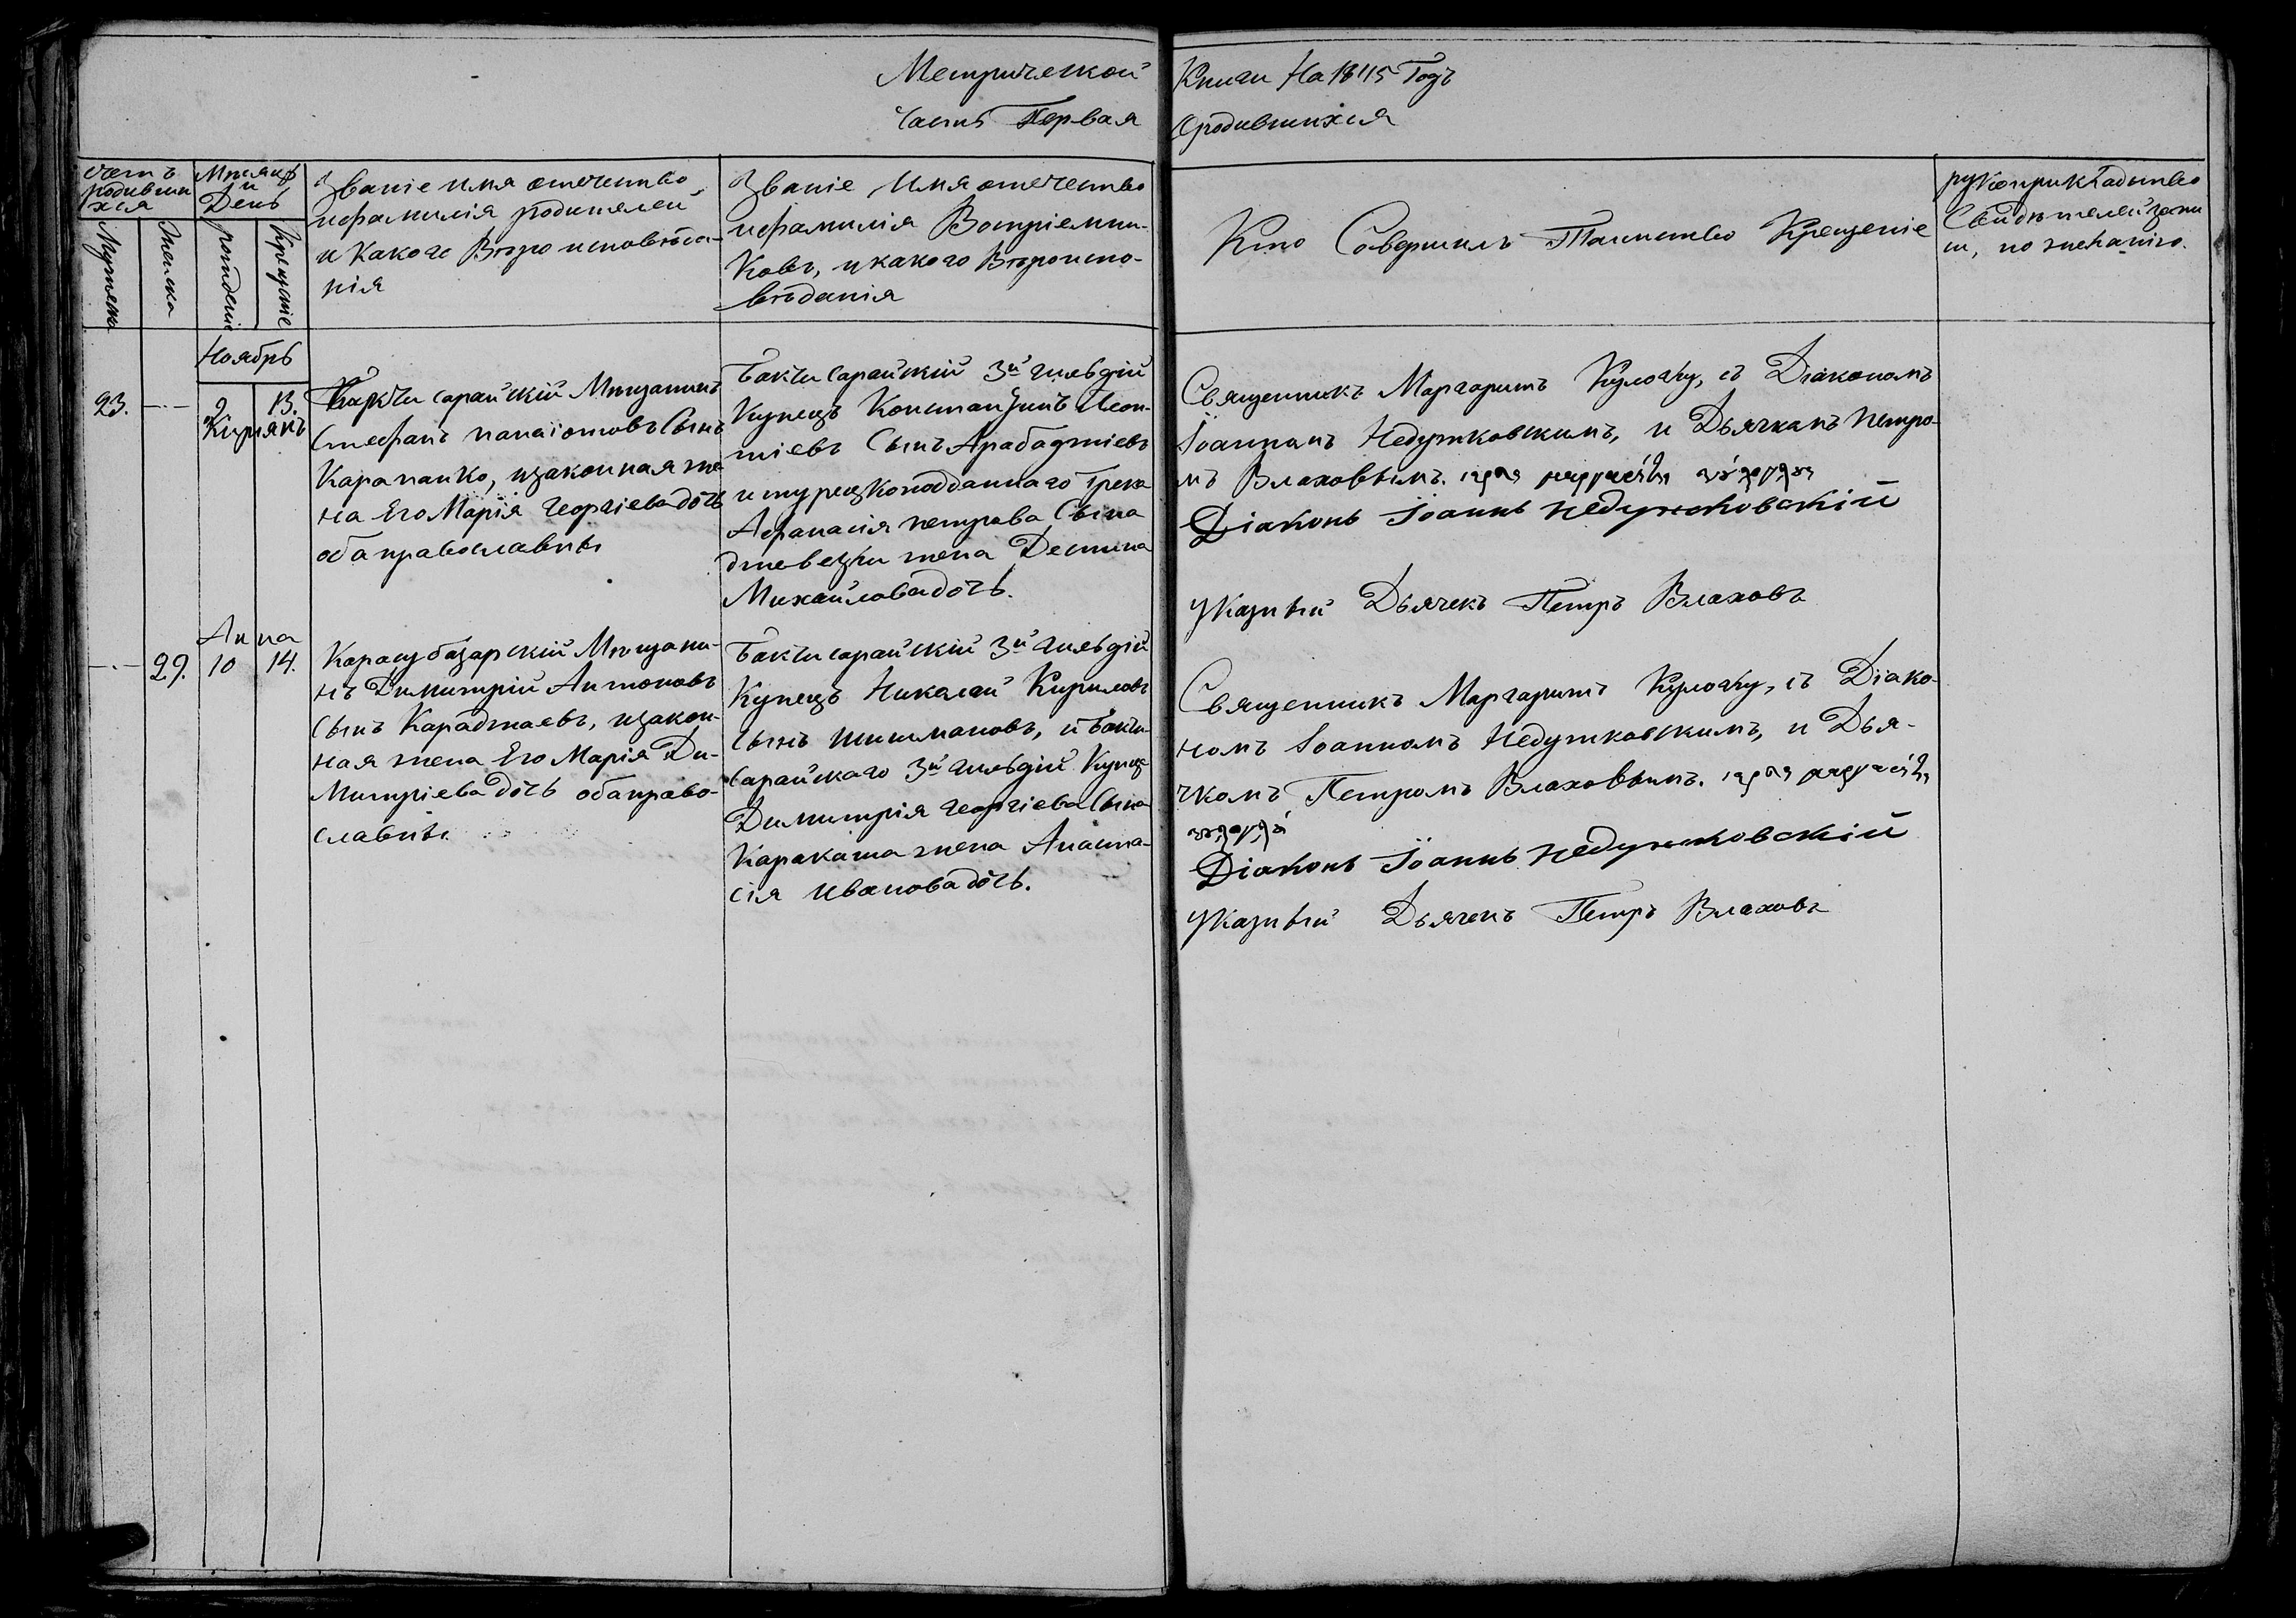 Метрической Книги На 1845 Годъ
Часть Первая О родившихся
Счетъ родивши хся
Мужеска
Женска
Мѣсяцъ и День
рожденіе
Крещеніе
Званіе имя отечество,
и фамилія родителей
и Какого Вѣро исповѣда-
нія
Званіе Имя отечество
и фамилія Воспріемни-
Ковъ, и какого Вѣроиспо-
вѣданія
Кто Совершилъ Таинство Крещеніе
рукоприкладство
Свидѣтелей запи
си, по желанію.
Ноябрь
23.
9
13.
Кирьякъ
Бахчисарайскій Мѣщанинъ
Стефанъ панаіотовъ Сынъ
Карапанко, изаконная же
на Его Марія Георгіева дочь
оба православны
Бахчисарайскій 3й гильдій
Купецъ Константинъ Леон-
тіевъ Сынъ Арабаджіевъ
и турецкоподданнаго Грека
Афанасія петрова Сына
жена Деспина
Михайлова дочь.
Священникъ Маргаритъ с Діакономъ
Іоанномъ Недужковскимъ, и Дьячкомъ Петро-
мъ Влаховымъ.
Діаконъ Іоаннъ Недужковскій
Указный Дьячекъ Петръ Влаховъ
29.
Анна
10
14.
Карасубазарскій Мѣщани-
нъ Димитрій Антоновъ
Сынъ Караджаевъ, изакон-
ная жена Его Марія Ди-
митріева дочь оба право-
славны.
Бахчисарайскій 3й гильдій
Купецъ Николай Кириловъ
Сынъ Шишмановъ, и Бахчи-
сарайскаго 3й гильдій Купца
Димитрія Георгіева Сына
Каракаша жена Анаста-
сія Иванова дочь.
Священникъ Маргаритъ с Діако-
номъ Іоанномъ Недужковскимъ, и Дья-
чкомъ Петромъ Влаховымъ.
Діаконъ Іоаннъ Недужковскій
Указный Дьячекъ Петръ Влаховъ